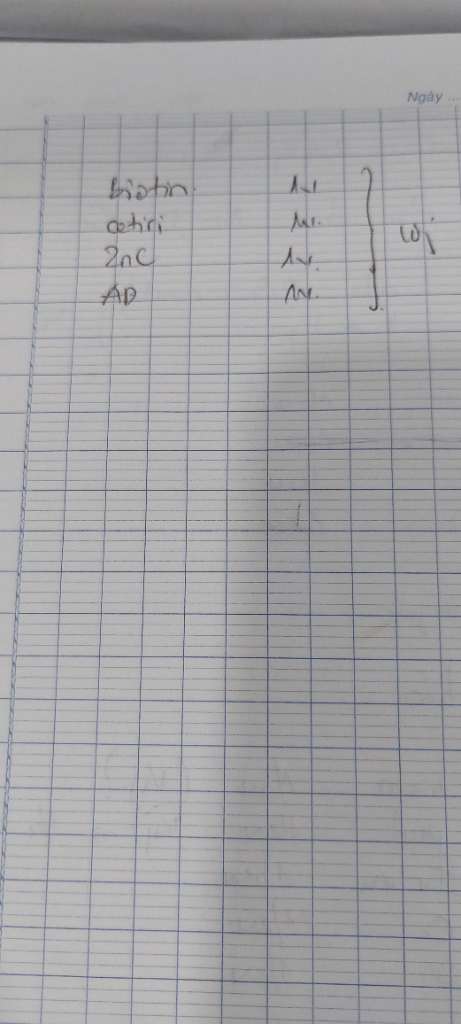 Ngày ...
Biotin 1v
cetiri 1v.
ZnC 1v.
AD 1v.